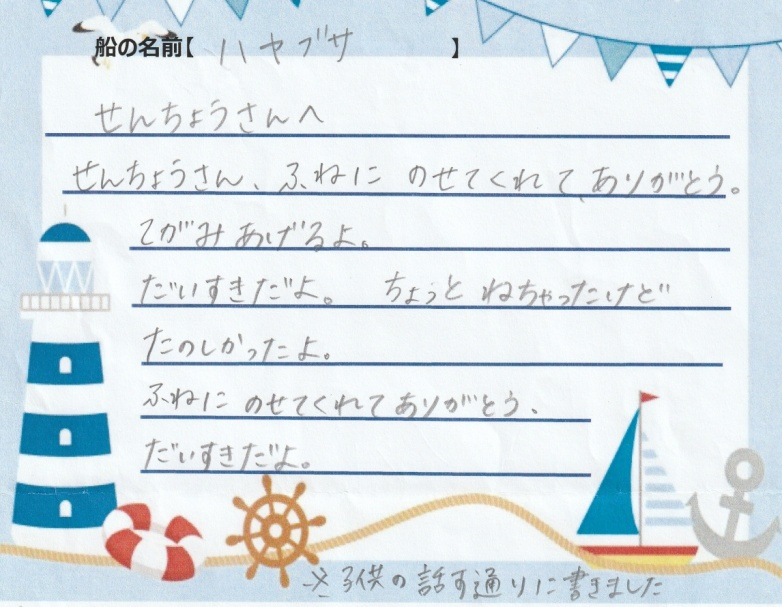 船の名前【 ハヤブサ 】
せんちょうさんへ
せんちょうさん、ふねに のせてくれて、ありがとう。
てがみ あげるよ。
だいすきだよ。 ちょっと ねちゃったけど
たのしかったよ。
ふねに のせてくれて ありがとう、
だいすきだよ。
※子供の話す通りに書きました